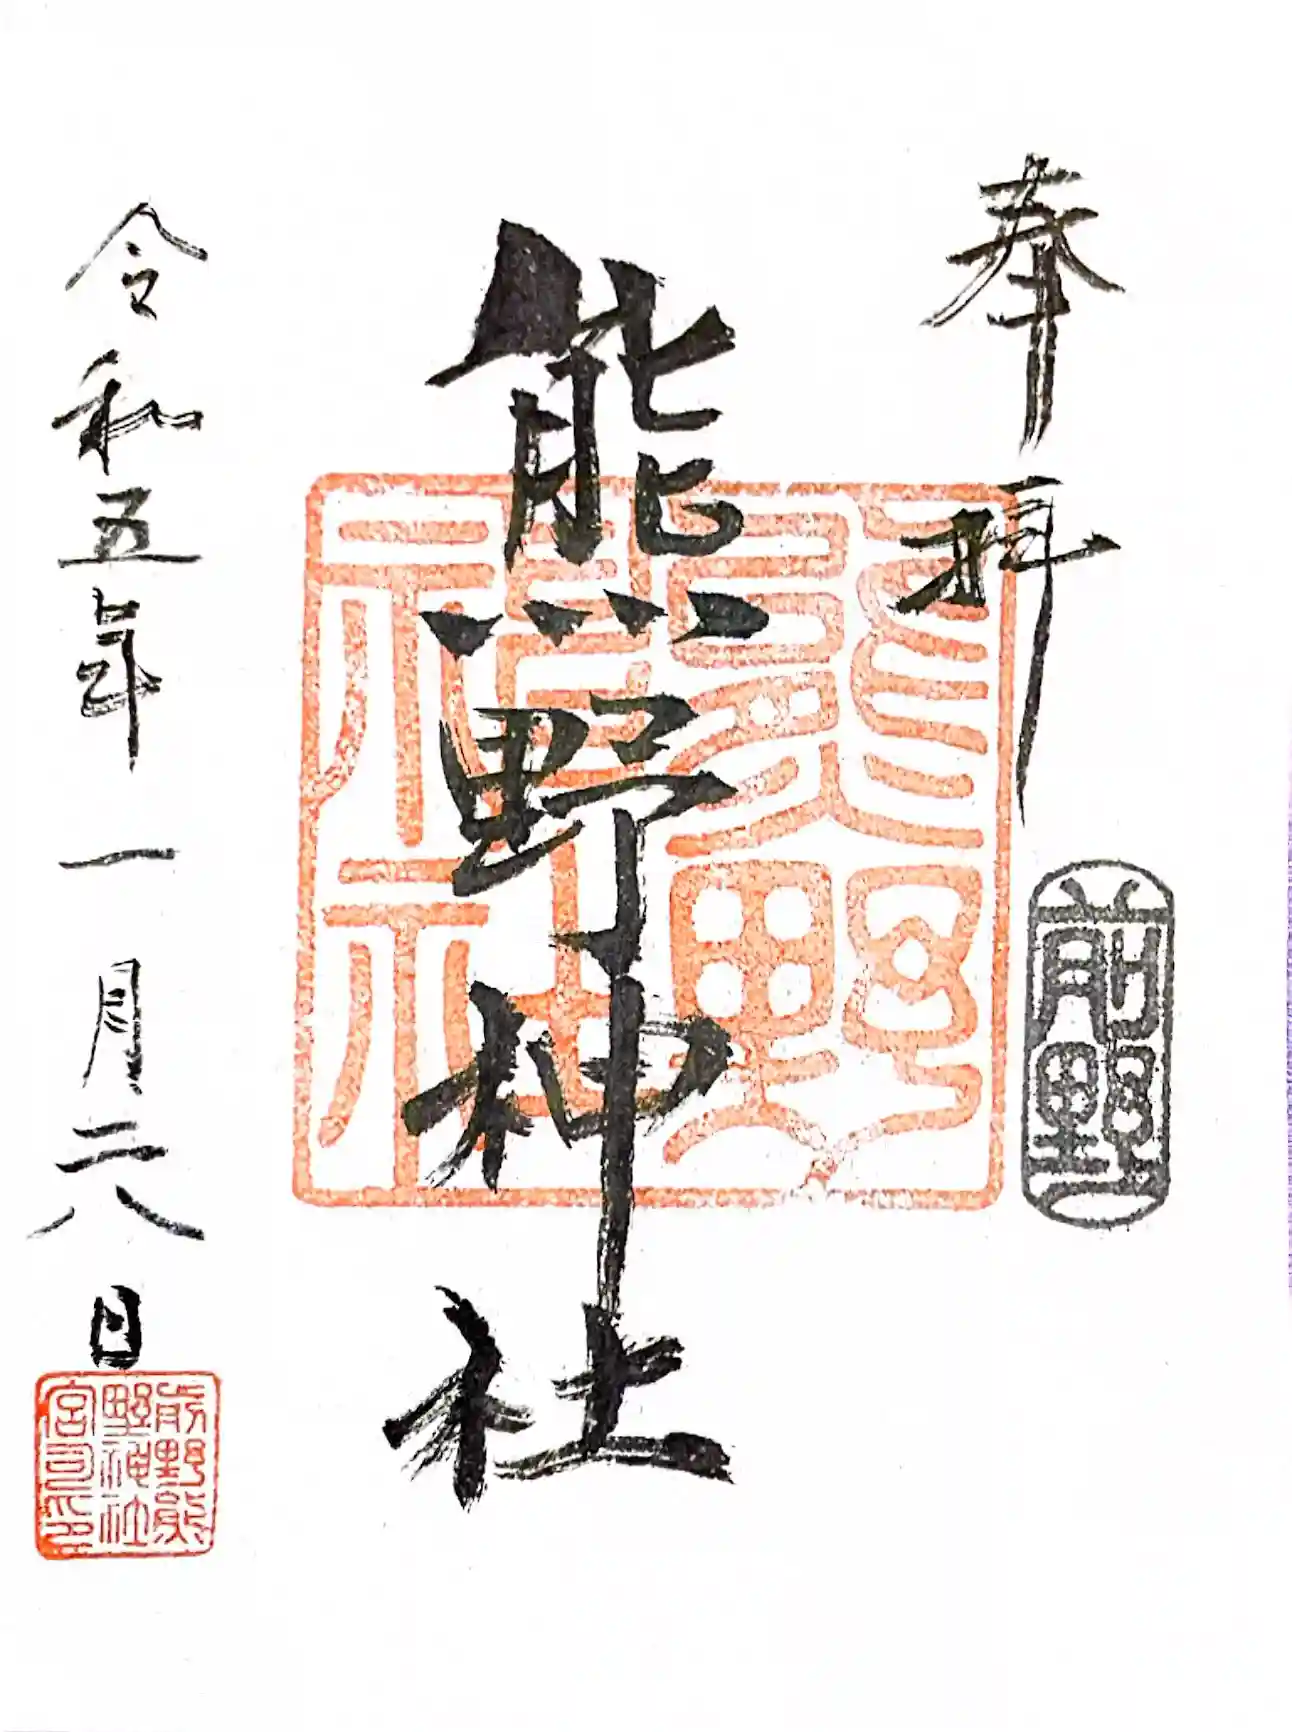 奉拝
前野
熊野神社
熊野神社
令和五年一月二八日
前野熊野神社宮司之印